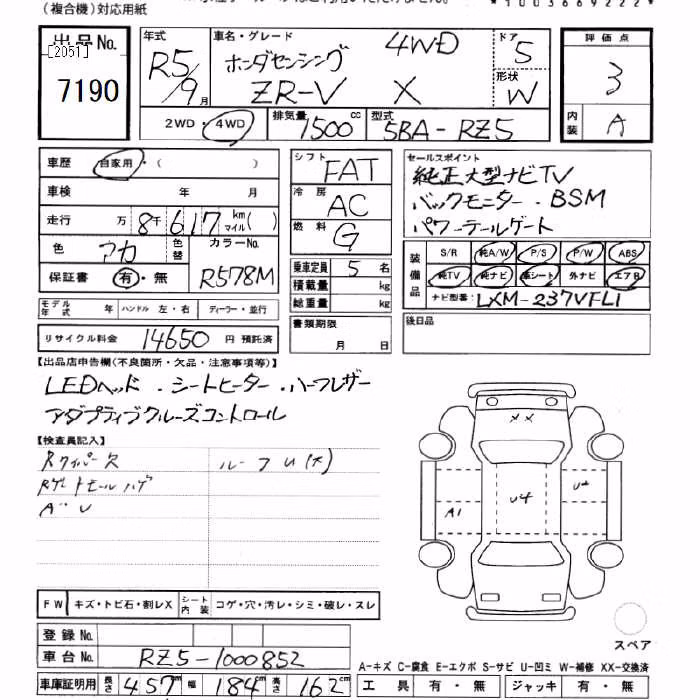 (複合機)対応用紙
*1003689222*
出品No. [2051] 7190
年式 R5/9月
車名・グレード ホンダセンシング 4WD
ZR-V X
ドア 5
形状 W
評価点 3
内装 A
2WD・4WD
排気量 1500cc
型式 5BA-RZ5
車歴 自家用・( )
車検 年 月
走行 万 8千 617 km マイル( )
色 アカ 色替 カラーNo. R578M
保証書 有・無
モデル年式 年 ハンドル 左・右 ディーラー・並行
リサイクル料金 14650 円 預託済
シフト FAT
冷房 AC
燃料 G
乗車定員 5 名
積載量 kg
総重量 kg
書類期限 月 日
セールスポイント
純正大型ナビTV
バックモニター・BSM
パワーテールゲート
装備品 S/R 純A/W P/S P/W ABS
純TV 純ナビ 革シート 外ナビ エアB
ナビ型番 LXM-237VFLI
後日品
【出品店申告欄(不良箇所・欠品・注意事項等)】
LEDヘッド・シートヒーター・ハーフレザー
アダプティブクルーズコントロール
【検査員記入】
Rワイパー欠 ルーフU(大)
Rゲートモールハゲ
XX
U4
U4
A1
FW キズ・トビ石・割レX シート内装 コゲ・穴・汚レ・シミ・破レ・スレ
登録No.
車台No. RZ5-1000852
スペア
A-キズ C-腐食 E-エクボ S-サビ U-凹ミ W-補修 XX-交換済
車庫証明用 長さ 457m 幅 184m 高さ 162m
工具 有・無 ジャッキ 有・無